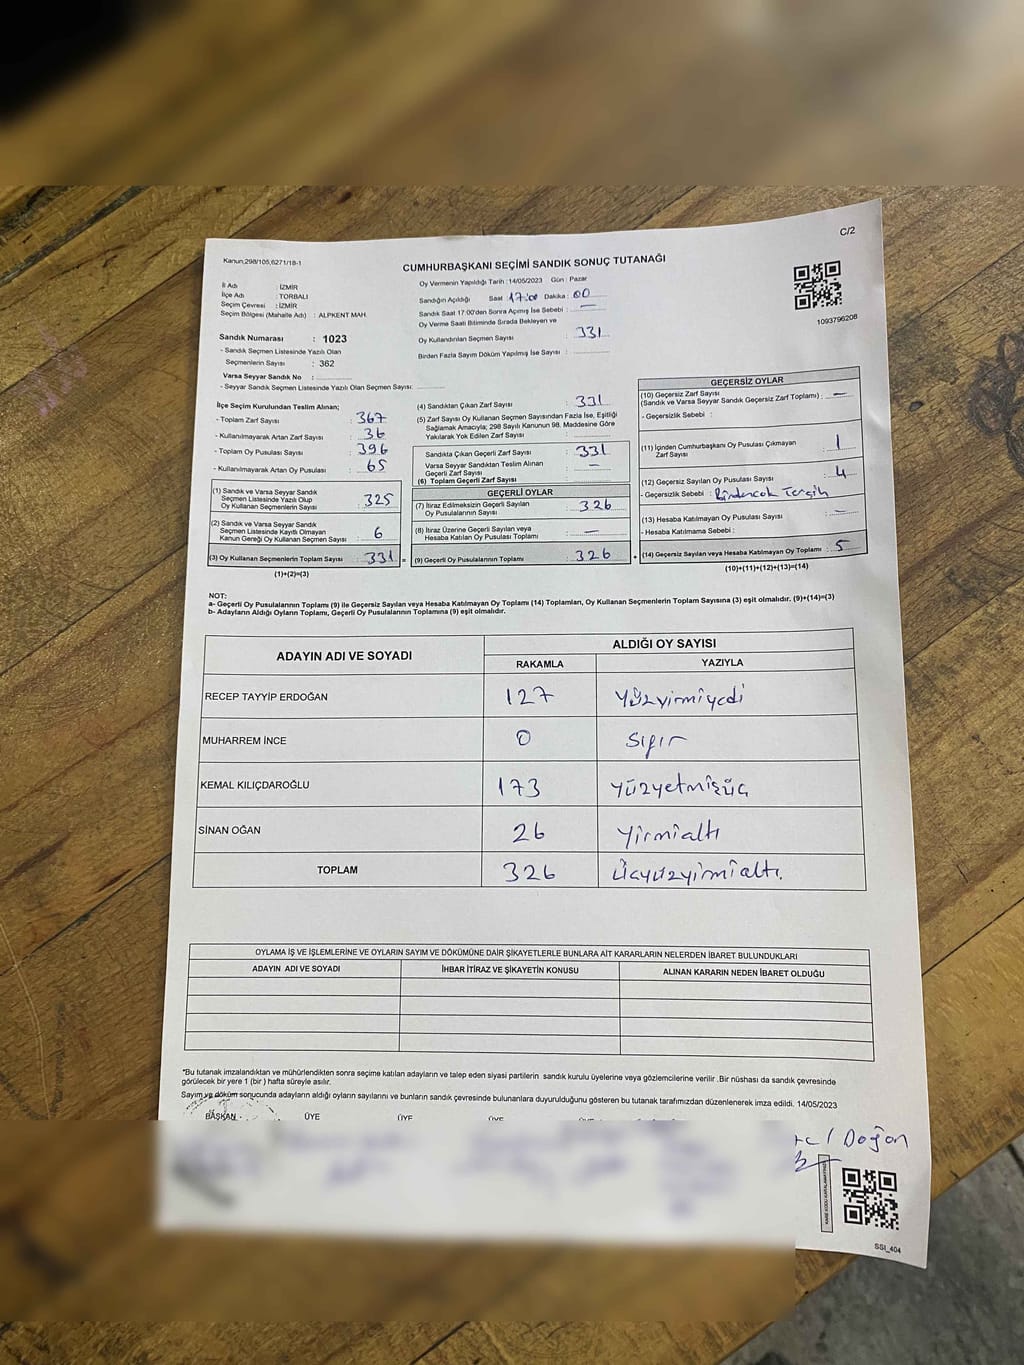 C/2
Kanun,298/105,6271/18-1
CUMHURBAŞKANI SEÇİMİ SANDIK SONUÇ TUTANAĞI
İl Adı : İZMİR
İlçe Adı : TORBALI
Seçim Çevresi : İZMİR
Seçim Bölgesi (Mahalle Adı) : ALPKENT MAH.
Oy Vermenin Yapıldığı Tarih :14/05/2023 Gün : Pazar
Sandığın Açıldığı Saat 17:00 Dakika : 00
Sandık Saat 17:00'den Sonra Açımış İse Sebebi : —
Oy Verme Saati Bitiminde Sırada Bekleyen ve
Oy Kullandırılan Seçmen Sayısı : 331
Birden Fazla Sayım Döküm Yapılmış İse Sayısı :
1093796208
Sandık Numarası : 1023
- Sandık Seçmen Listesinde Yazılı Olan
Seçmenlerin Sayısı : 362
Varsa Seyyar Sandık No :
- Seyyar Sandık Seçmen Listesinde Yazılı Olan Seçmen Sayısı:
İlçe Seçim Kurulundan Teslim Alınan;
- Toplam Zarf Sayısı : 367
- Kullanılmayarak Artan Zarf Sayısı : 36
- Toplam Oy Pusulası Sayısı : 396
- Kullanılmayarak Artan Oy Pusulası : 65
(1) Sandık ve Varsa Seyyar Sandık
Seçmen Listesinde Yazılı Olup
Oy Kullanan Seçmenlerin Sayısı : 325
(2) Sandık ve Varsa Seyyar Sandık
Seçmen Listesinde Kayıtlı Olmayan
Kanun Gereği Oy Kullanan Seçmen Sayısı : 6
(3) Oy Kullanan Seçmenlerin Toplam Sayısı : 331 =
(1)+(2)=(3)
(4) Sandıktan Çıkan Zarf Sayısı : 331
(5) Zarf Sayısı Oy Kullanan Seçmen Sayısından Fazla İse, Eşitliği
Sağlamak Amacıyla; 298 Sayılı Kanunun 98. Maddesine Göre
Yakılarak Yok Edilen Zarf Sayısı :
Sandıkta Çıkan Geçerli Zarf Sayısı : 331
Varsa Seyyar Sandıktan Teslim Alınan
Geçerli Zarf Sayısı : —
(6) Toplam Geçerli Zarf Sayısı :
GEÇERLİ OYLAR
(7) İtiraz Edilmeksizin Geçerli Sayılan
Oy Pusulalarının Sayısı : 326
(8) İtiraz Üzerine Geçerli Sayılan veya
Hesaba Katılan Oy Pusulası Toplamı : —
(9) Geçerli Oy Pusulalarının Toplamı : 326 +
GEÇERSİZ OYLAR
(10) Geçersiz Zarf Sayısı
(Sandık ve Varsa Seyyar Sandık Geçersiz Zarf Toplamı) : —
- Geçersizlik Sebebi :
(11) İçinden Cumhurbaşkanı Oy Pusulası Çıkmayan
Zarf Sayısı : 1
(12) Geçersiz Sayılan Oy Pusulası Sayısı : 4
- Geçersizlik Sebebi : Birdencok Tercih
(13) Hesaba Katılmayan Oy Pusulası Sayısı : —
- Hesaba Katılmama Sebebi :
(14) Geçersiz Sayılan veya Hesaba Katılmayan Oy Toplamı : 5
(10)+(11)+(12)+(13)=(14)
NOT:
a- Geçerli Oy Pusulalarının Toplamı (9) ile Geçersiz Sayılan veya Hesaba Katılmayan Oy Toplamı (14) Toplamları, Oy Kullanan Seçmenlerin Toplam Sayısına (3) eşit olmalıdır. (9)+(14)=(3)
b- Adayların Aldığı Oyların Toplamı, Geçerli Oy Pusulalarının Toplamına (9) eşit olmalıdır.
ADAYIN ADI VE SOYADI ALDIĞI OY SAYISI
RAKAMLA YAZIYLA
RECEP TAYYİP ERDOĞAN 127 Yüzyirmiyedi
MUHARREM İNCE 0 Sıfır
KEMAL KILIÇDAROĞLU 173 yüzyetmişüç
SİNAN OĞAN 26 Yirmialtı
TOPLAM 326 Üçyüzyirmialtı.
OYLAMA İŞ VE İŞLEMLERİNE VE OYLARIN SAYIM VE DÖKÜMÜNE DAİR ŞİKAYETLERLE BUNLARA AİT KARARLARIN NELERDEN İBARET BULUNDUKLARI
ADAYIN ADI VE SOYADI İHBAR İTİRAZ VE ŞİKAYETİN KONUSU ALINAN KARARIN NEDEN İBARET OLDUĞU
*Bu tutanak imzalandıktan ve mühürlendikten sonra seçime katılan adayların ve talep eden siyasi partilerin sandık kurulu üyelerine veya gözlemcilerine verilir .Bir nüshası da sandık çevresinde
görülecek bir yere 1 (bir ) hafta süreyle asılır.
Sayım ve döküm sonucunda adayların aldığı oyların sayılarını ve bunların sandık çevresinde bulunanlara duyurulduğunu gösteren bu tutanak tarafımızdan düzenlenerek imza edildi. 14/05/2023
BAŞKAN ÜYE ÜYE ÜYE
Doğan
SSI_404